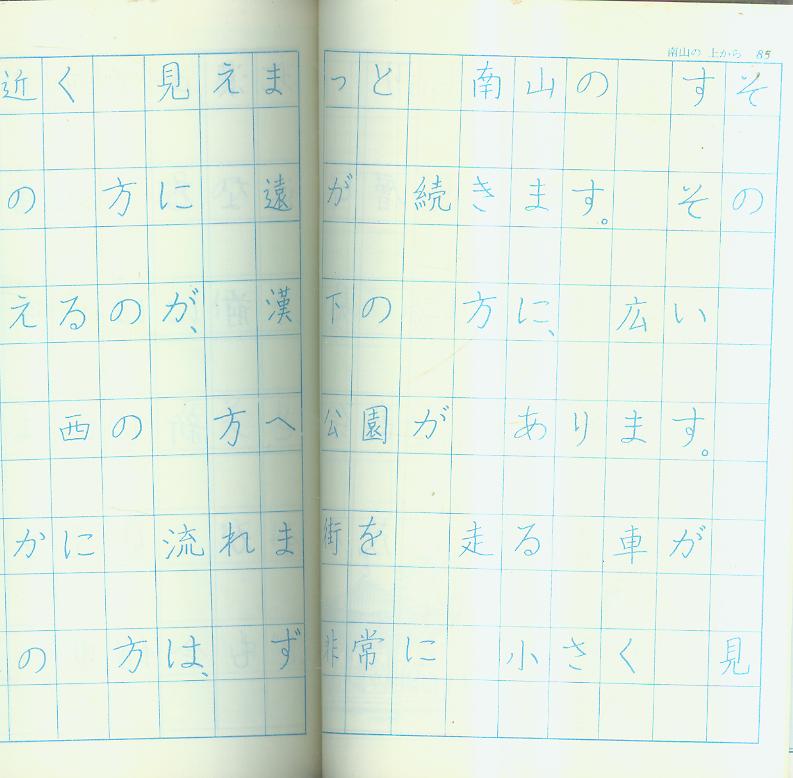 近く 見えま
の 方に 遠
えるのが、 漢
西の 方へ
かに 流れま
の 方は、 ず
南山の 上から 85
っと 南山の すそ
が 続きます。 その
下の 方に、 広い
公園が あります。
街を 走る 車が
非常に 小さく 見